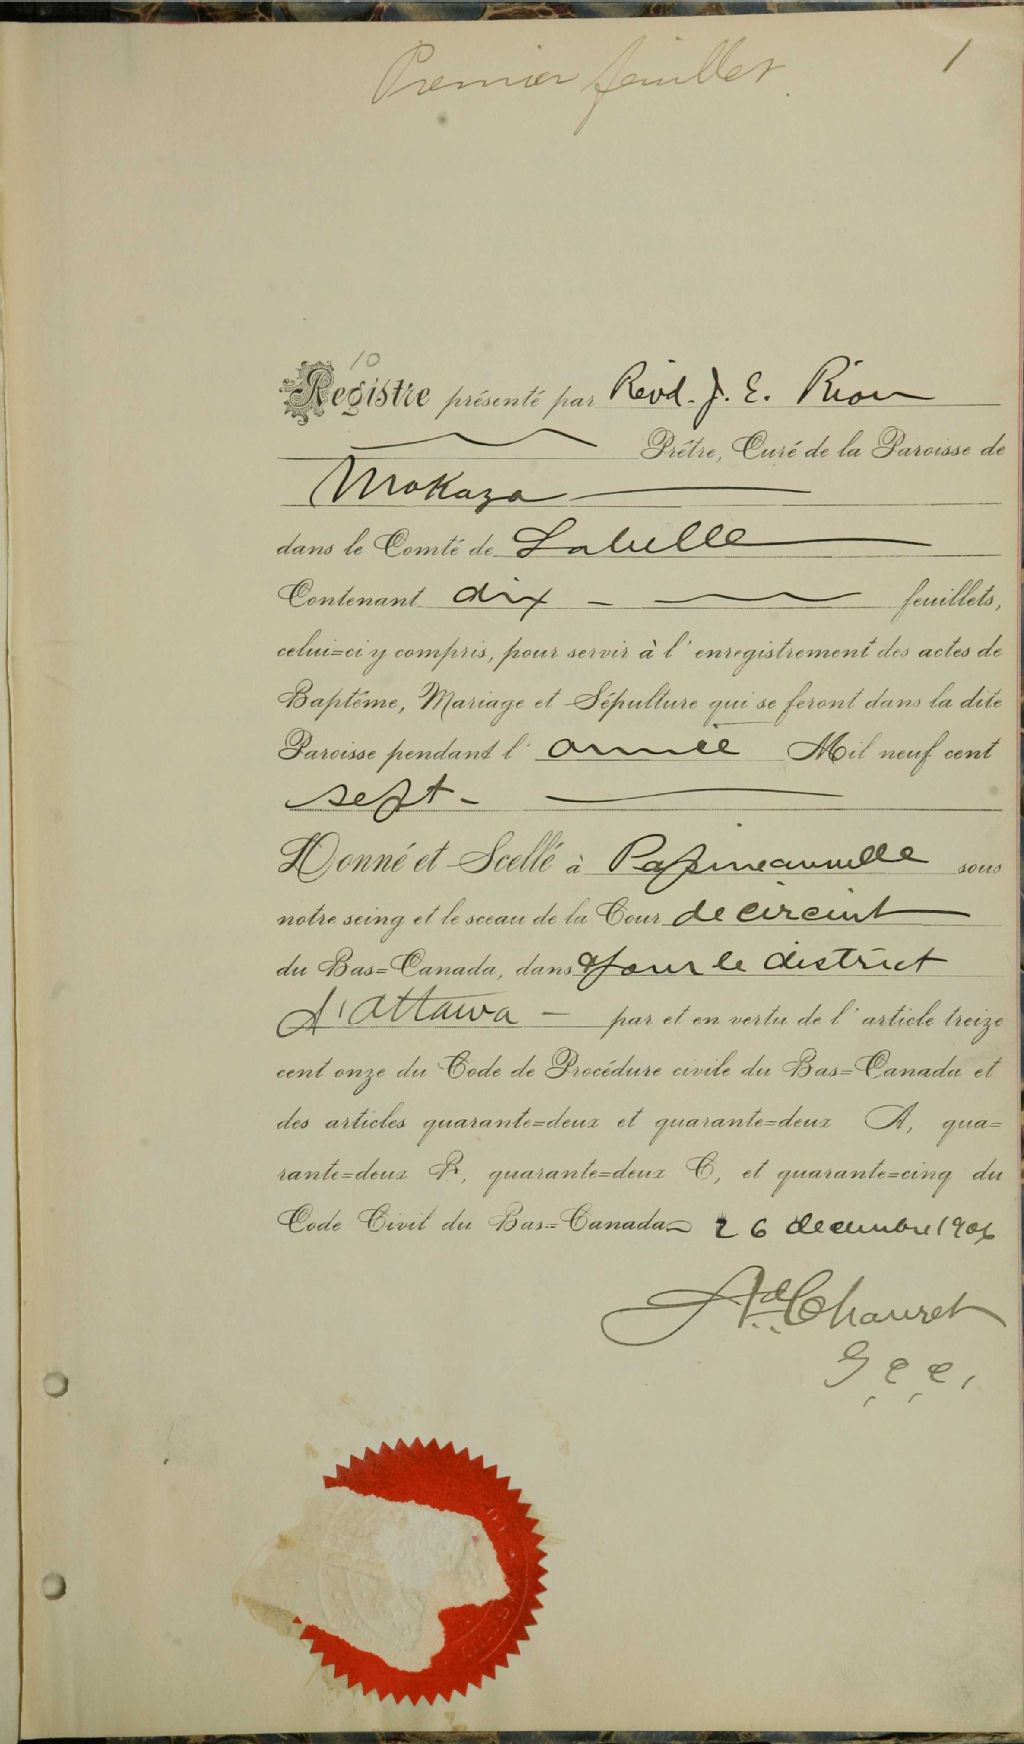 Premier feuillet
1
10
Registre présenté par Revd. J. E. Riou
Prêtre, Curé de la Paroisse de
Mokaza
dans le Comté de Labelle
Contenant dix feuillets,
celui=ci y compris, pour servir à l'enregistrement des actes de
Baptême, Mariage et Sépulture qui se feront dans la dite
Paroisse pendant l'année Mil neuf cent
sept -
Donné et Scellé à Papineauville sous
notre seing et le sceau de la Cour de circuit
du Bas=Canada, dans & pour le district
d'Ottawa - par et en vertu de l'article treize
cent onze du Code de Procédure civile du Bas=Canada et
des articles quarante=deux et quarante=deux A, qua=
rante=deux B, quarante=deux C, et quarante=cinq du
Code Civil du Bas=Canada 26 decembre 1906
Ad Chauret
G. C. C.